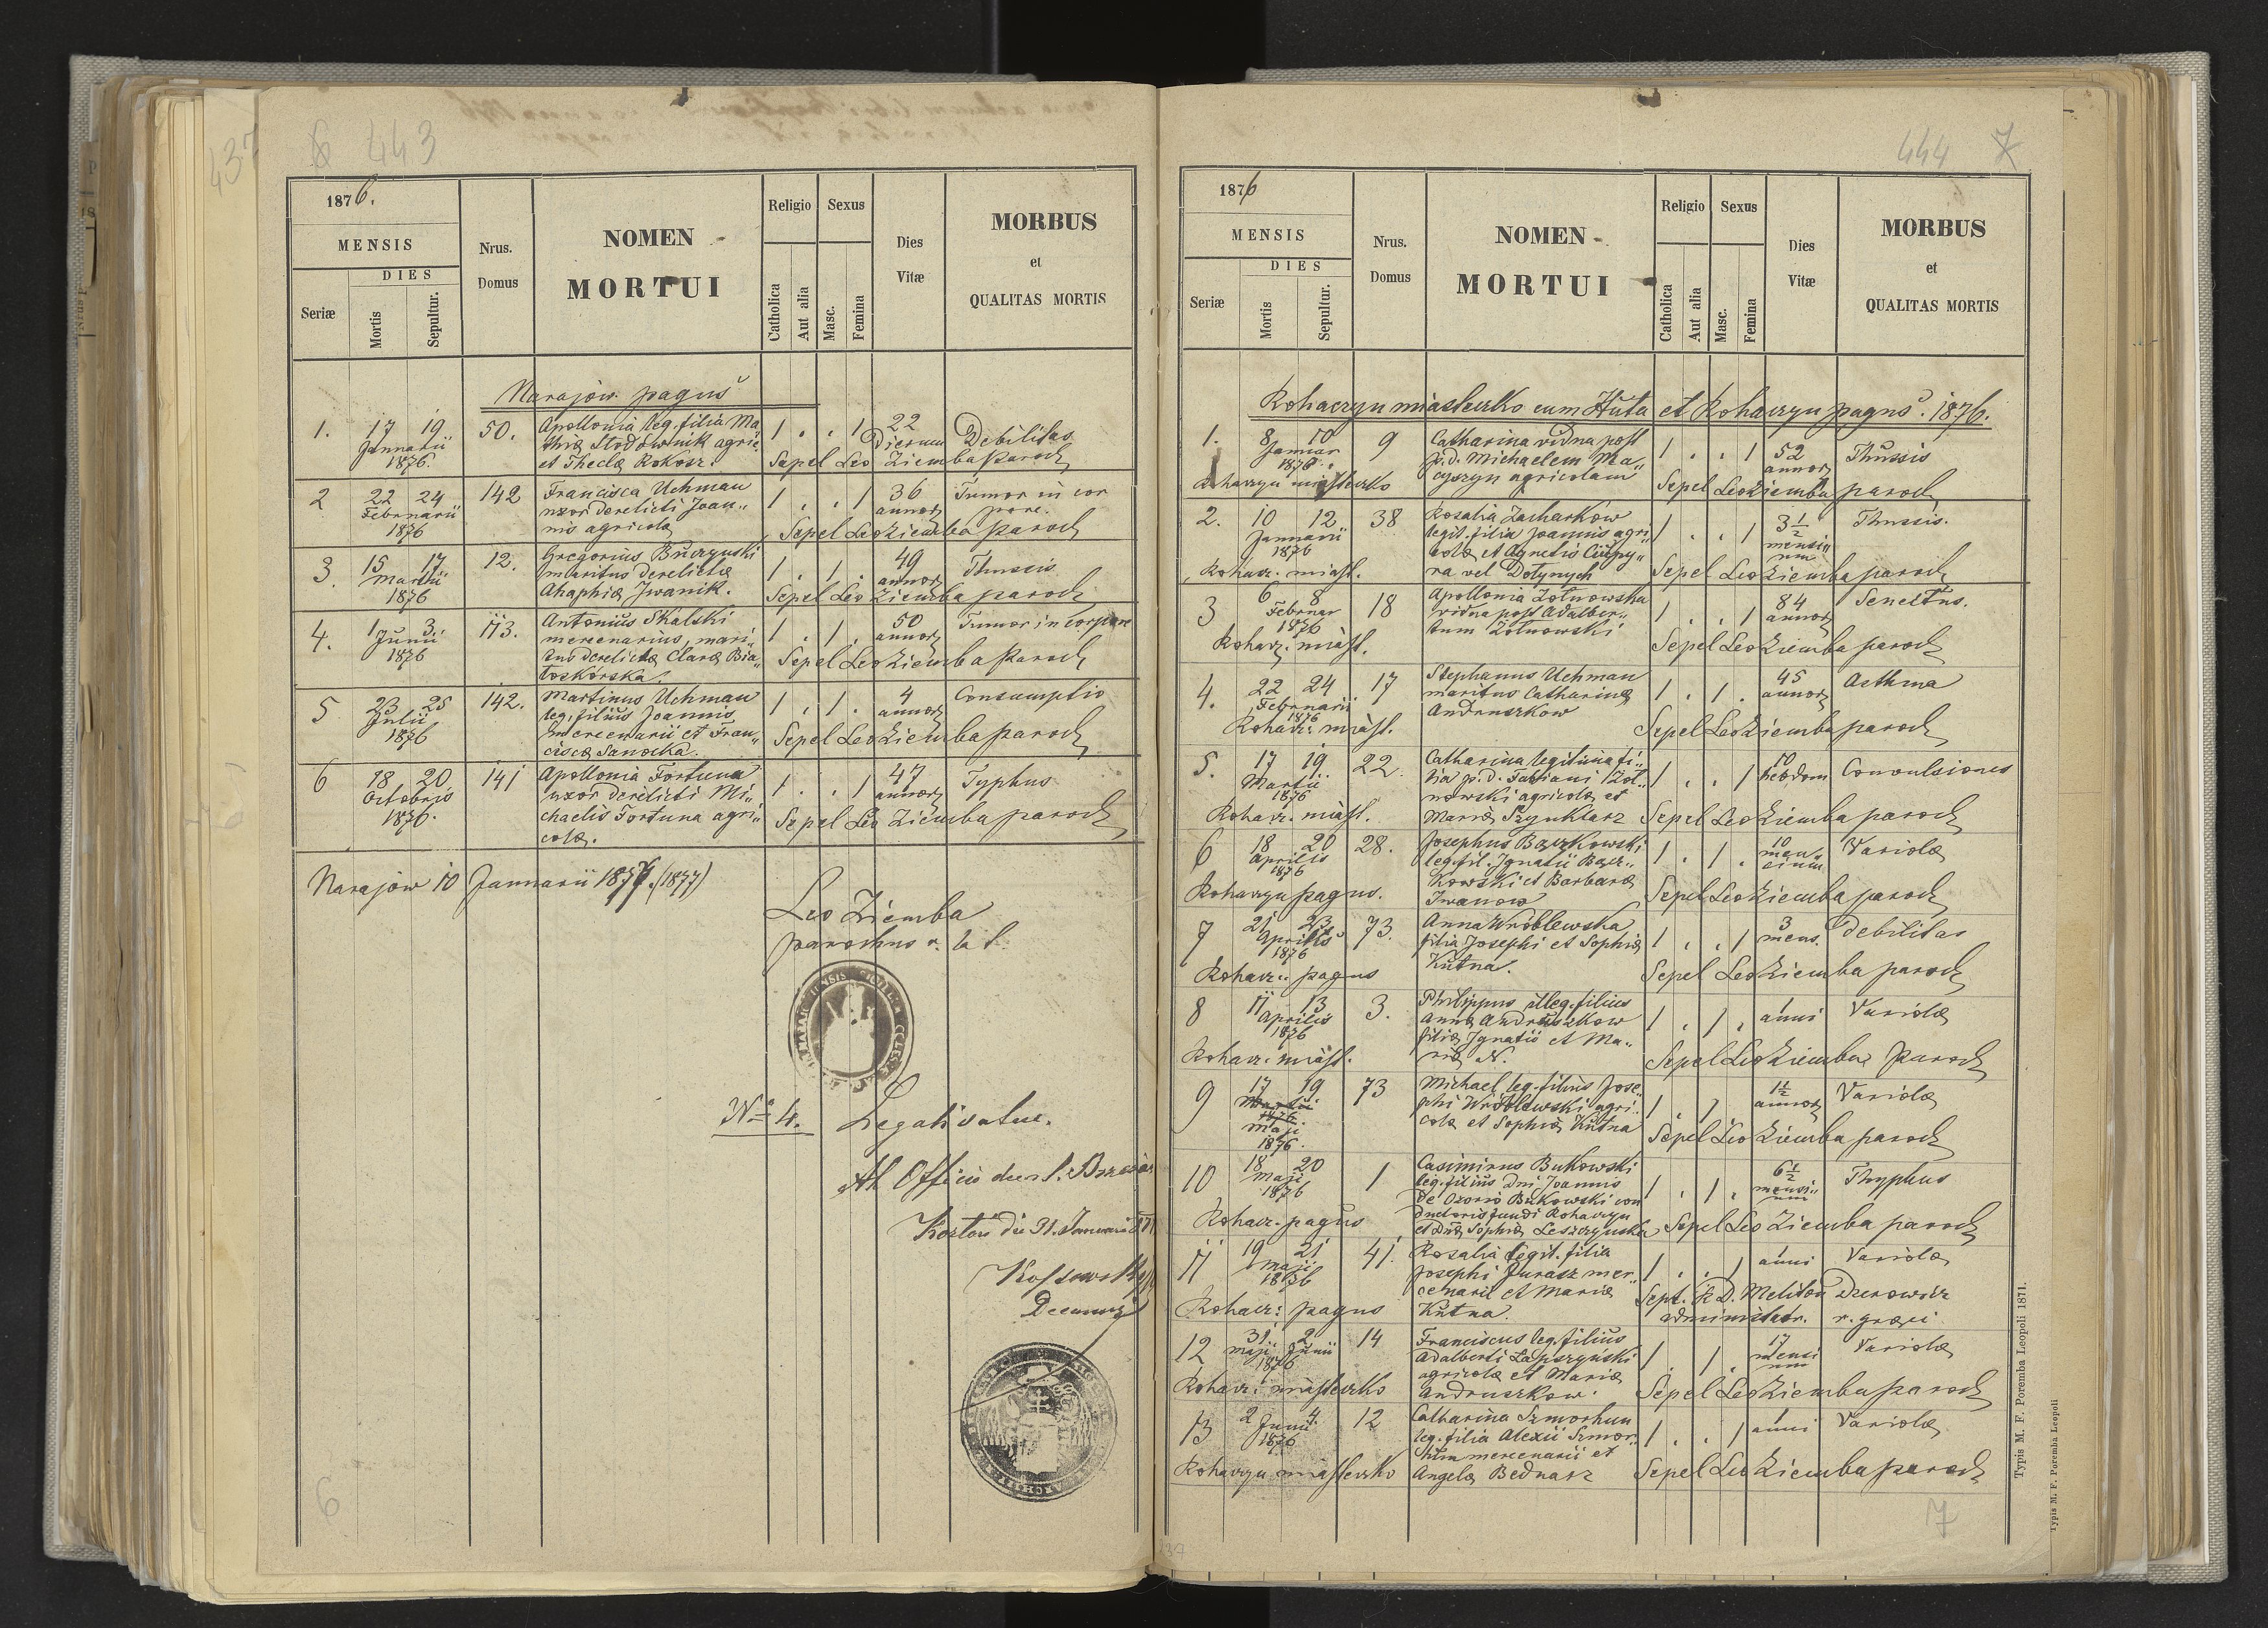 443
1876.
MENSIS
DIES
Seriæ
Mortis
Sepultur.
Nrus.
Domus
NOMEN
MORTUI
Religio
Sexus
Catholica
Aut alia
Masc.
Femina
Dies
Vitæ
MORBUS
et
QUALITAS MORTIS
Narajow pagus
1. 17 19 50. Apollonia leg. filia Ma„ 1 . . 1 22
Januarii thiæ Stodownik agric. Dierum Debilitas
1876. et Theclæ Rokosz. Sepel Leo Ziemba Paroch
2 22 24 142 Francisca Uchman 1 . . 1 36 Tumor in cor
Februarii uxor derelicti Joan„ annor pore.
1876 nis agricolæ Sepel Leo Ziemba paroch
3. 15 17 12. Gregorius Buczynski 1 . 1 . 49 Thussis
Martii maritus derelictæ annor
1876 Ahaphiæ Iwanik. Sepel Leo Ziemba paroch
4. 1 3 113. Antonius Skalski 1 . 1 . 50 Tumor in corpore
Junii mercenarius, mari„ annor
1876 tus derelictæ Claræ Bia„ Sepel Leo Ziemba Paroch
łoskórska.
5 23 25 142. Martinus Uchman 1 . 1 . 4 Consumptio
Julii leg. filius Joannis annor
1876 mercenarii et Fran„ Sepel Leo Ziemba paroch
ciscæ Sanocka.
6 18 20 141 Apollonia Fortuna 1 . . 1 47 Typhus
Octobris uxor derelicti Mi„ annor
1876. chaelis Fortuna agri„ Sepel Leo Ziemba paroch
colæ.
Narajow 10 Januarii 1877. (1877)
Leo Ziemba
parochus r. lat.
Nº 4. Legalisatur.
Ab Officio
die 31. Januarii
Decanus
6
444 7
1876
MENSIS
DIES
Seriæ
Mortis
Sepultur.
Nrus.
Domus
NOMEN
MORTUI
Religio
Sexus
Catholica
Aut alia
Masc.
Femina
Dies
Vitæ
MORBUS
et
QUALITAS MORTIS
Rohaczyn miasteczko cum Huta et Rohaczyn pagus. 1876.
1. 8 10 9 Catharina vidua post 1 . . 1 52 Thussis
Januar p.d. Michaelem Ma„ annor
1876. cyszyn agricolam Sepel Leo Ziemba paroch
Rohaczyn miasteczko
2. 10 12 38 Rosalia Zacharkow 1 . . 1 3½ Thussis.
Januarii legit. filia Joannis agri„ mensi„
1876 colæ et Agnetis um
Rohacz. miast. ra vel Dolynych Sepel Leo Ziemba paroch
3 6 8 18 Apollonia Zolnowska 1 . . 1 84 Senectus.
Februar vidua post Adalber„ annor
1876 tum Zolnowski
Rohacz. miast. Sepel Leo Ziemba paroch
4. 22 24 17 Stephanus Uchman 1 . 1 . 45 Asthma
Februarii maritus Catharinæ annor
1876 Andruszkow
Rohacz. miast. Sepel Leo Ziemba paroch
5. 17 19 22. Catharina legitima fi„ 1 . . 1 10 Convulsiones
Martii lia p.d. Fabiani Zol„ hebdom
1876 nowski agricolæ et
Rohacz. miast. Mariæ Szynklarz Sepel Leo Ziemba paroch
6 18 20 28. Josephus Baczkowski 1 . 1 . 10 Variolæ
Aprilis leg. fil. Ignatii Bacz„ men„
1876 kowski et Barbaræ sium
Rohaczyn pagus. Iwanow Sepel Leo Ziemba paroch
7 21 23 73. Anna Wróblewska 1 . . 1 3 Debilitas
Aprilis filia Josephi et Sophiæ mens.
1876 Kutna.
Rohacz. pagus Sepel Leo Ziemba paroch
8 11 13 3. Philippus illeg. filius 1 . 1 . 1 Variolæ
Aprilis Annæ Andruszkow anni
1876 filiæ Ignatii et Ma„
Rohacz. miast. riæ N. Sepel Leo Ziemba Paroch
9 17 19 73 Michael leg. filius Jose„ 1 . 1 . 1½ Variolæ
Martii phi Wróblewski agri„ annor
1876. colæ et Sophiæ Kutna
Maji Sepel Leo Ziemba paroch
1876.
10 18 20 1 Casimirus Bukowski 1 . 1 . 6½ Thyphus
Maji leg. filius Dni Joannis mensi„
1876 de Ozorio Bukowski con um
ductoris fundi Rohaczyn
Rohacz. pagus et Dnæ Sophiæ Leszczynska Sepel Leo Ziemba paroch
11 19 21 41. Rosalia legit. filia 1 . . 1 1 Variolæ
Maji Josephi Jurasz mer„ anni
1876 cenarii et Mariæ Sept. R.D. Meliton
Rohacz: pagus Kutna. administr. r. græci
12 31 2 14 Franciscus leg. filius 1 . 1 . 17 Variolæ
Maji Junii Adalberti Lapszyński mensi
1876 agricolæ et Mariæ um
Rohacz: miasteczko Andruszkow. Sepel Leo Ziemba paroch
13 2 4 12 Catharina Szmorhun 1 . . 1 1 Variolæ
Junii leg. filia Alexii Szmor„ anni
1876 hun mercenarii et
Rohaczyn miasteczko Angelæ Bednarz Sepel Leo Ziemba paroch
7
Typis M. F. Poremba Leopoli 1871.
Typis M. F. Poremba Leopoli